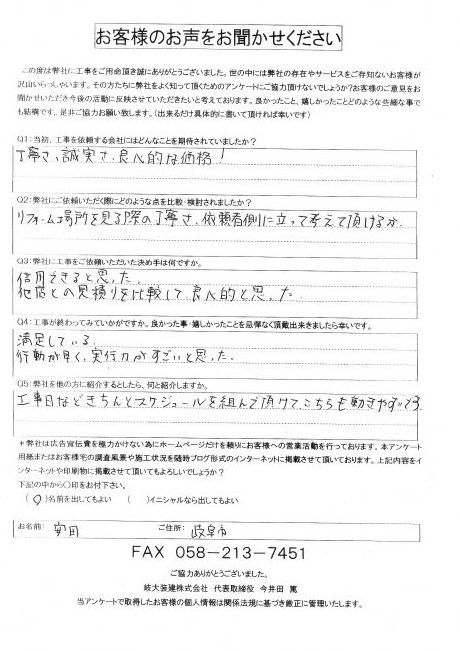 お客様のお声をお聞かせください
この度は弊社に工事をご用命頂き誠にありがとうございました。世の中には弊社の存在やサービスをご存知ないお客様が
沢山いらっしゃいます。その方たちに弊社をよく知って頂くためのアンケートにご協力頂けないでしょうか?お客様のご意見をお
聞かせいただき今後の活動に反映させていただきたいと考えております。良かったこと、嬉しかったことどのような些細な事で
も結構です、是非ご協力お願い致します。(出来るだけ具体的に書いて頂ければ幸いです)
Q1:当初、工事を依頼する会社にはどんなことを期待されていましたか?
丁寧さ、誠実さ、良心的な価格!
Q2:弊社にご依頼いただく際にどのような点を比較・検討されましたか?
リフォーム場所を見る際の丁寧さ、依頼者側に立って考えて頂けるか.
Q3:弊社に工事をご依頼いただいた決め手は何ですか。
信用できると思った.
他店との見積りを比較して、良心的と思った.
Q4:工事が終わってみていかがですか。良かった事・嬉しかったことを忌憚なく頂戴出来ましたら幸いです。
満足している.
行動が早く、実行力がすごいと思った.
Q5:弊社を他の方に紹介するとしたら、何と紹介しますか。
工事日などきちんとスケジュールを組んで頂けて、こちらも動きやすいです
*弊社は広告宣伝費を極力かけない為にホームページだけを頼りにお客様への営業活動を行っております。本アンケート
用紙またはお客様宅の調査風景や施工状況を随時ブログ形式のインターネットに掲載させて頂いております。上記内容をイ
ンターネットや印刷物に掲載させて頂いてもよろしいでしょうか?
下記の中から○印をお付下さい。
(○)名前を出してもよい ( )イニシャルなら出してもよい
お名前: 安田 ご住所: 岐阜市
FAX 058-213-7451
ご協力ありがとうございました。
岐大装建株式会社 代表取締役 今井田 篤
当アンケートで取得したお客様の個人情報は関係法規に基づき厳正に管理いたします。